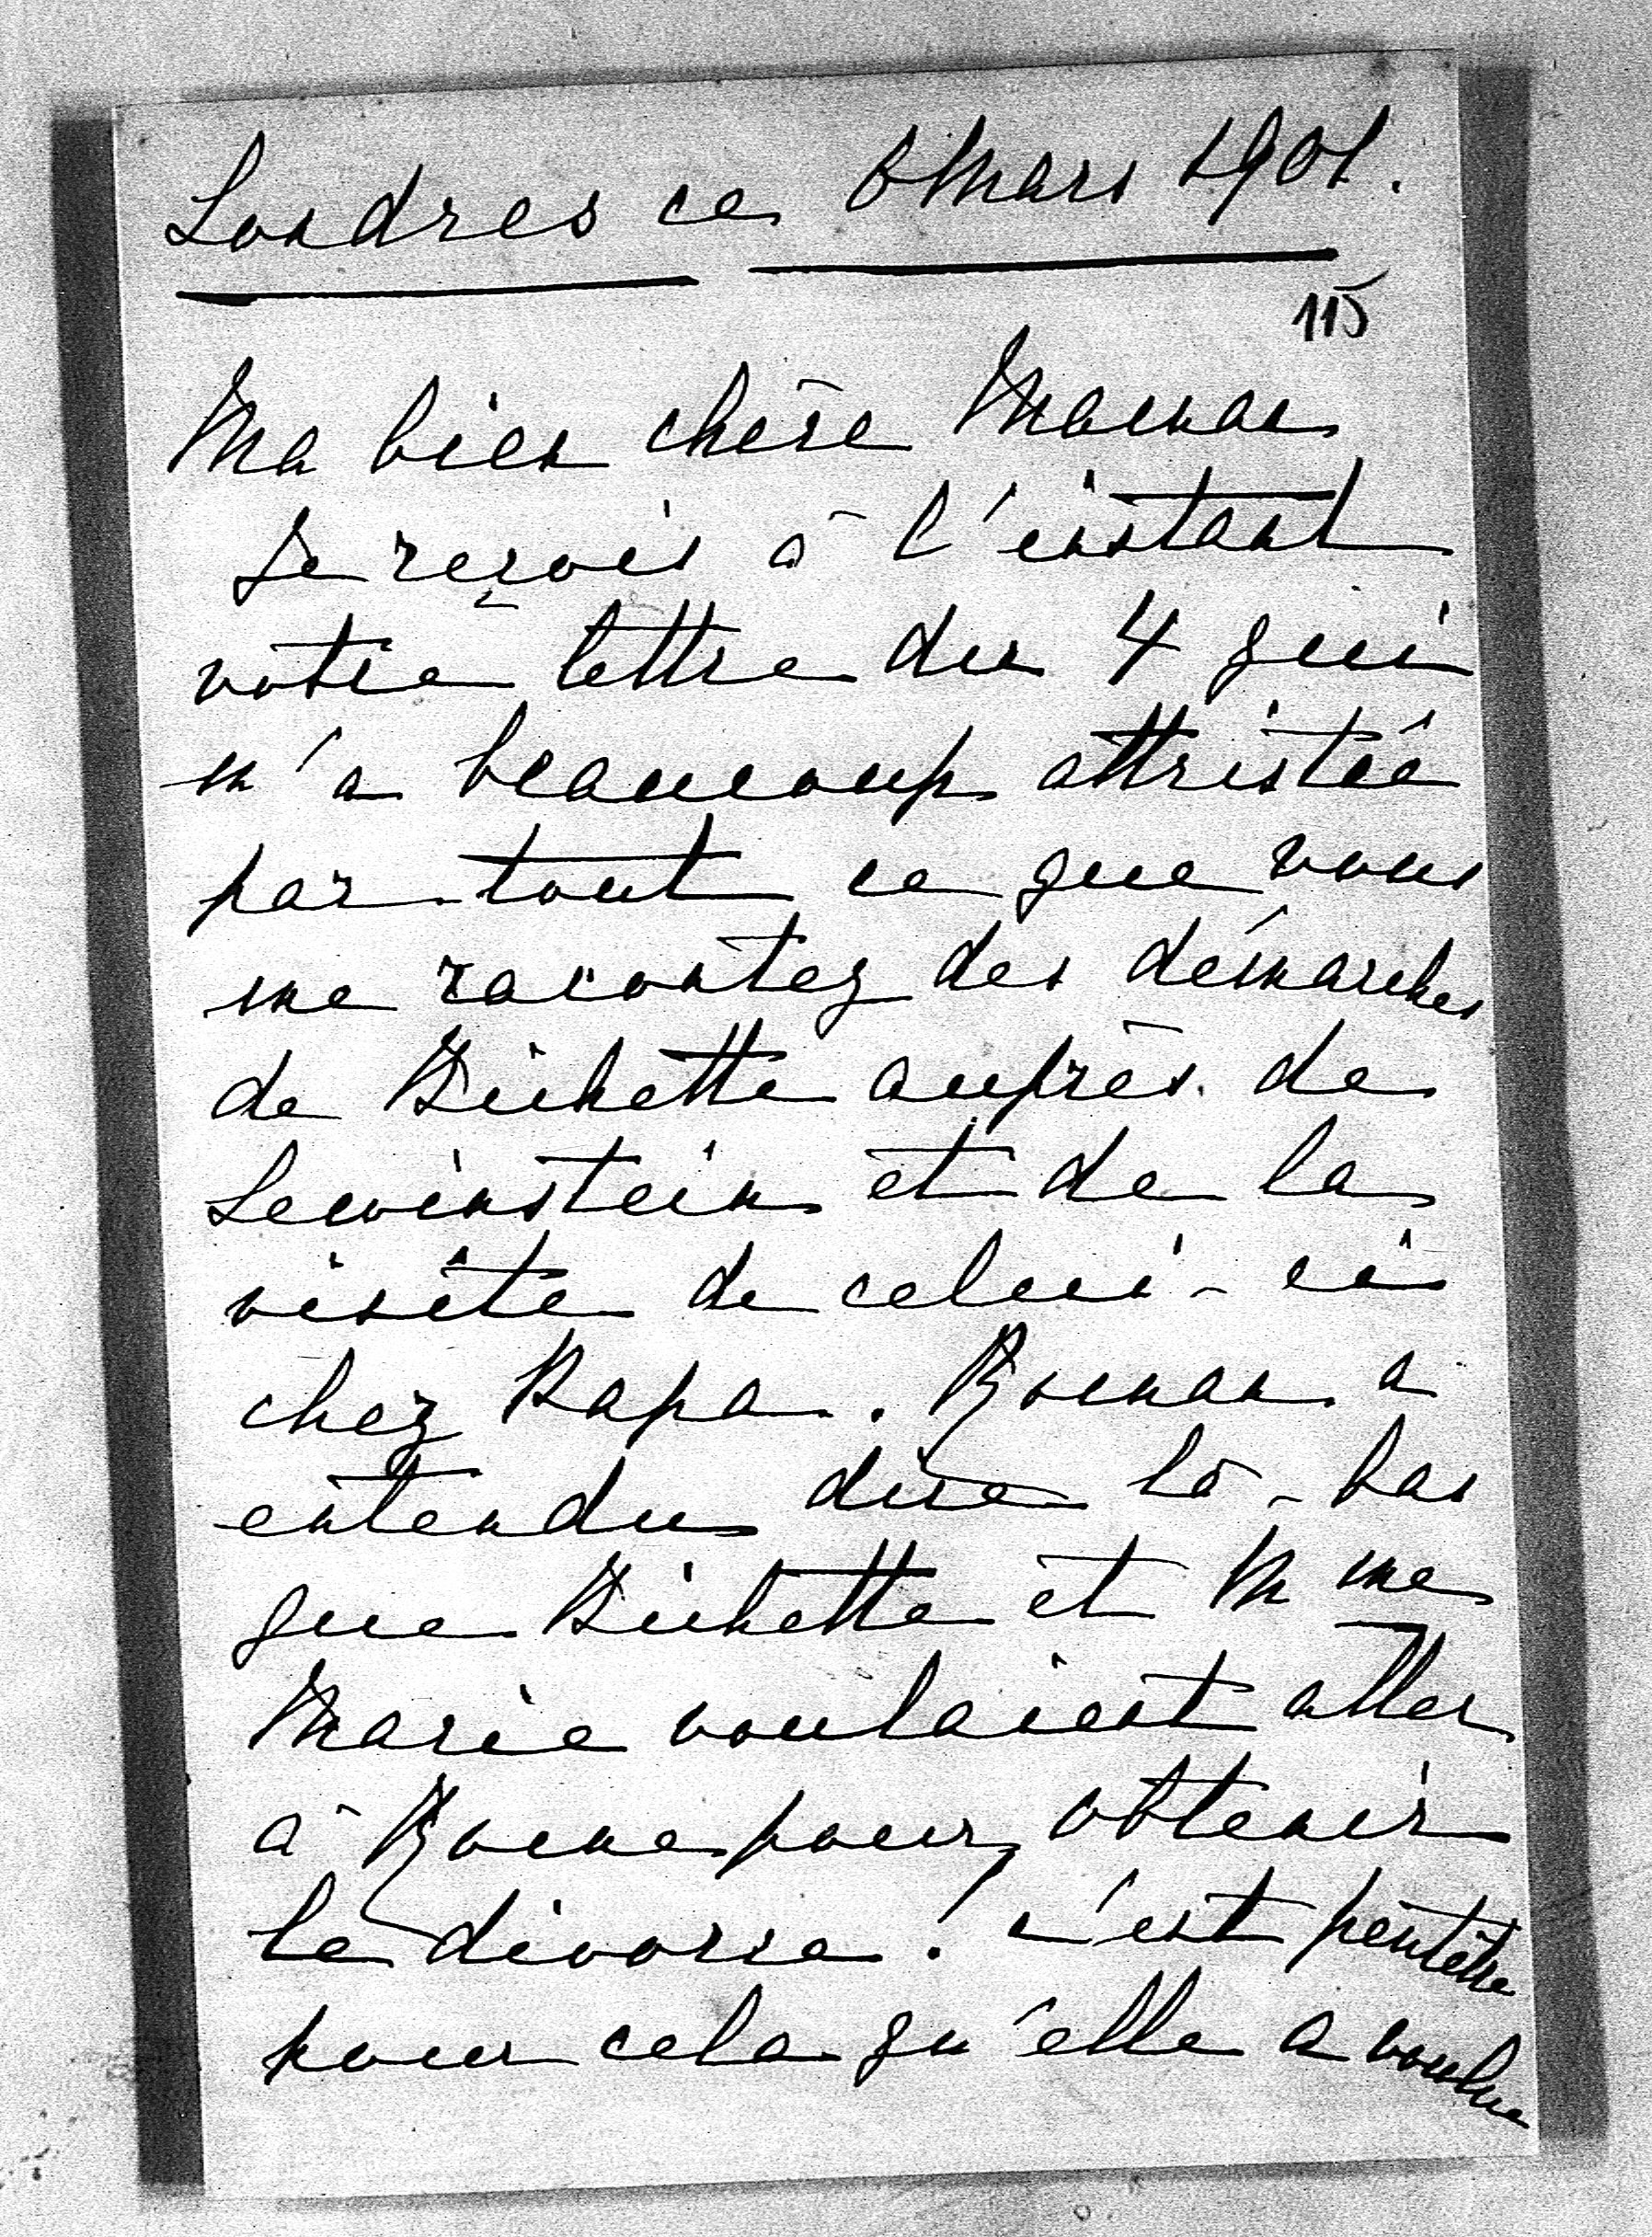 Londres ce 6 Mars 1901.
115
Ma bien chère Maman
Je reçois à l'instant
votre lettre du 4 qui
m'a beaucoup attristée
par tout ce que vous
me racontez des démarches
de Bichette auprès de
Lewinstein et de la
visite de celui-ci
chez Papa. Roman a
entendu dire là-bas
que Bichette et Mme
Marie voulaient aller
à Rome pour obtenir
le divorce! c'est peutêtre
pour cela qu'elle a voulue